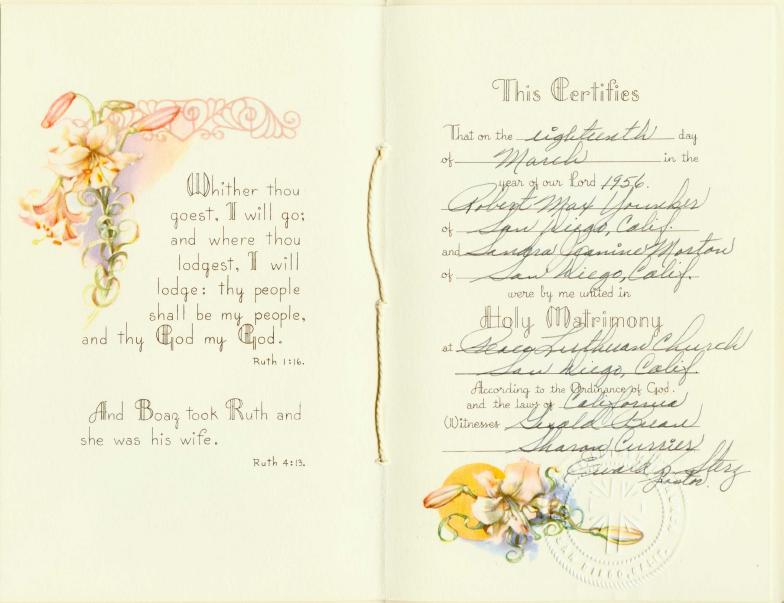 Whither thou
goest, I will go;
and where thou
lodgest, I will
lodge: thy people
shall be my people,
and thy God my God.
Ruth 1:16.
And Boaz took Ruth and
she was his wife.
Ruth 4:13.
This Certifies
That on the eighteenth day
of March in the
year of our Lord 1956.
Robert Max Younker
of San Diego, Calif.
and Sandra Jeanine Morton
of San Diego, Calif.
were by me united in
Holy Matrimony
at Lutheran Church
San Diego, Calif.
According to the Ordinance of God.
and the laws of California
Witnesses Gerald
Sharon Currier
Pastor.
SAN DIEGO, CALIF.